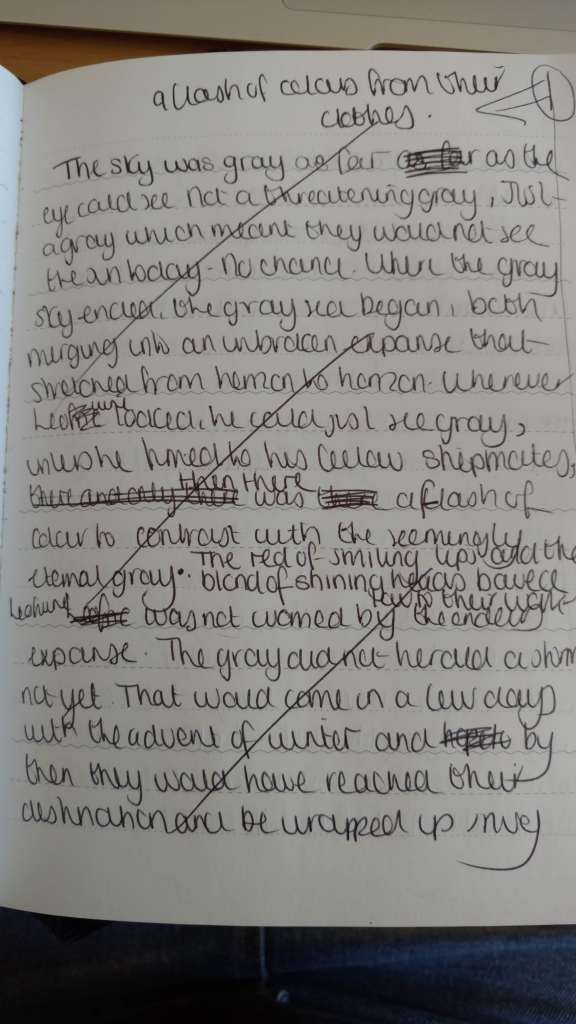 a flash of colour from their
clothes.
1
The sky was gray as far as far as the
eye could see. Not a threatening gray, Just
a gray which meant they would not see
the sun today. No chance. Where the gray
sky ended, the gray sea began, both
merging into an unbroken expanse that
stretched from horizon to horizon. Wherever
looked, he could just see gray,
unless he turned to his fellow shipmates,
then there
there and only there was a flash of
colour to contrast with the seemingly
The red of smiling lips and the
eternal gray. blond of shining heads bowed
to their work
Leofwine was not worried by the endless
expanse. The gray did not herald a storm
not yet. That would come in a few days
with the advent of winter and by
then they would have reached their
destination and be wrapped up snug